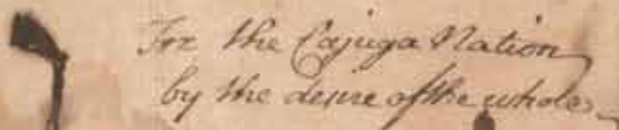 For the Cajuga Nation
by the desire of the whole